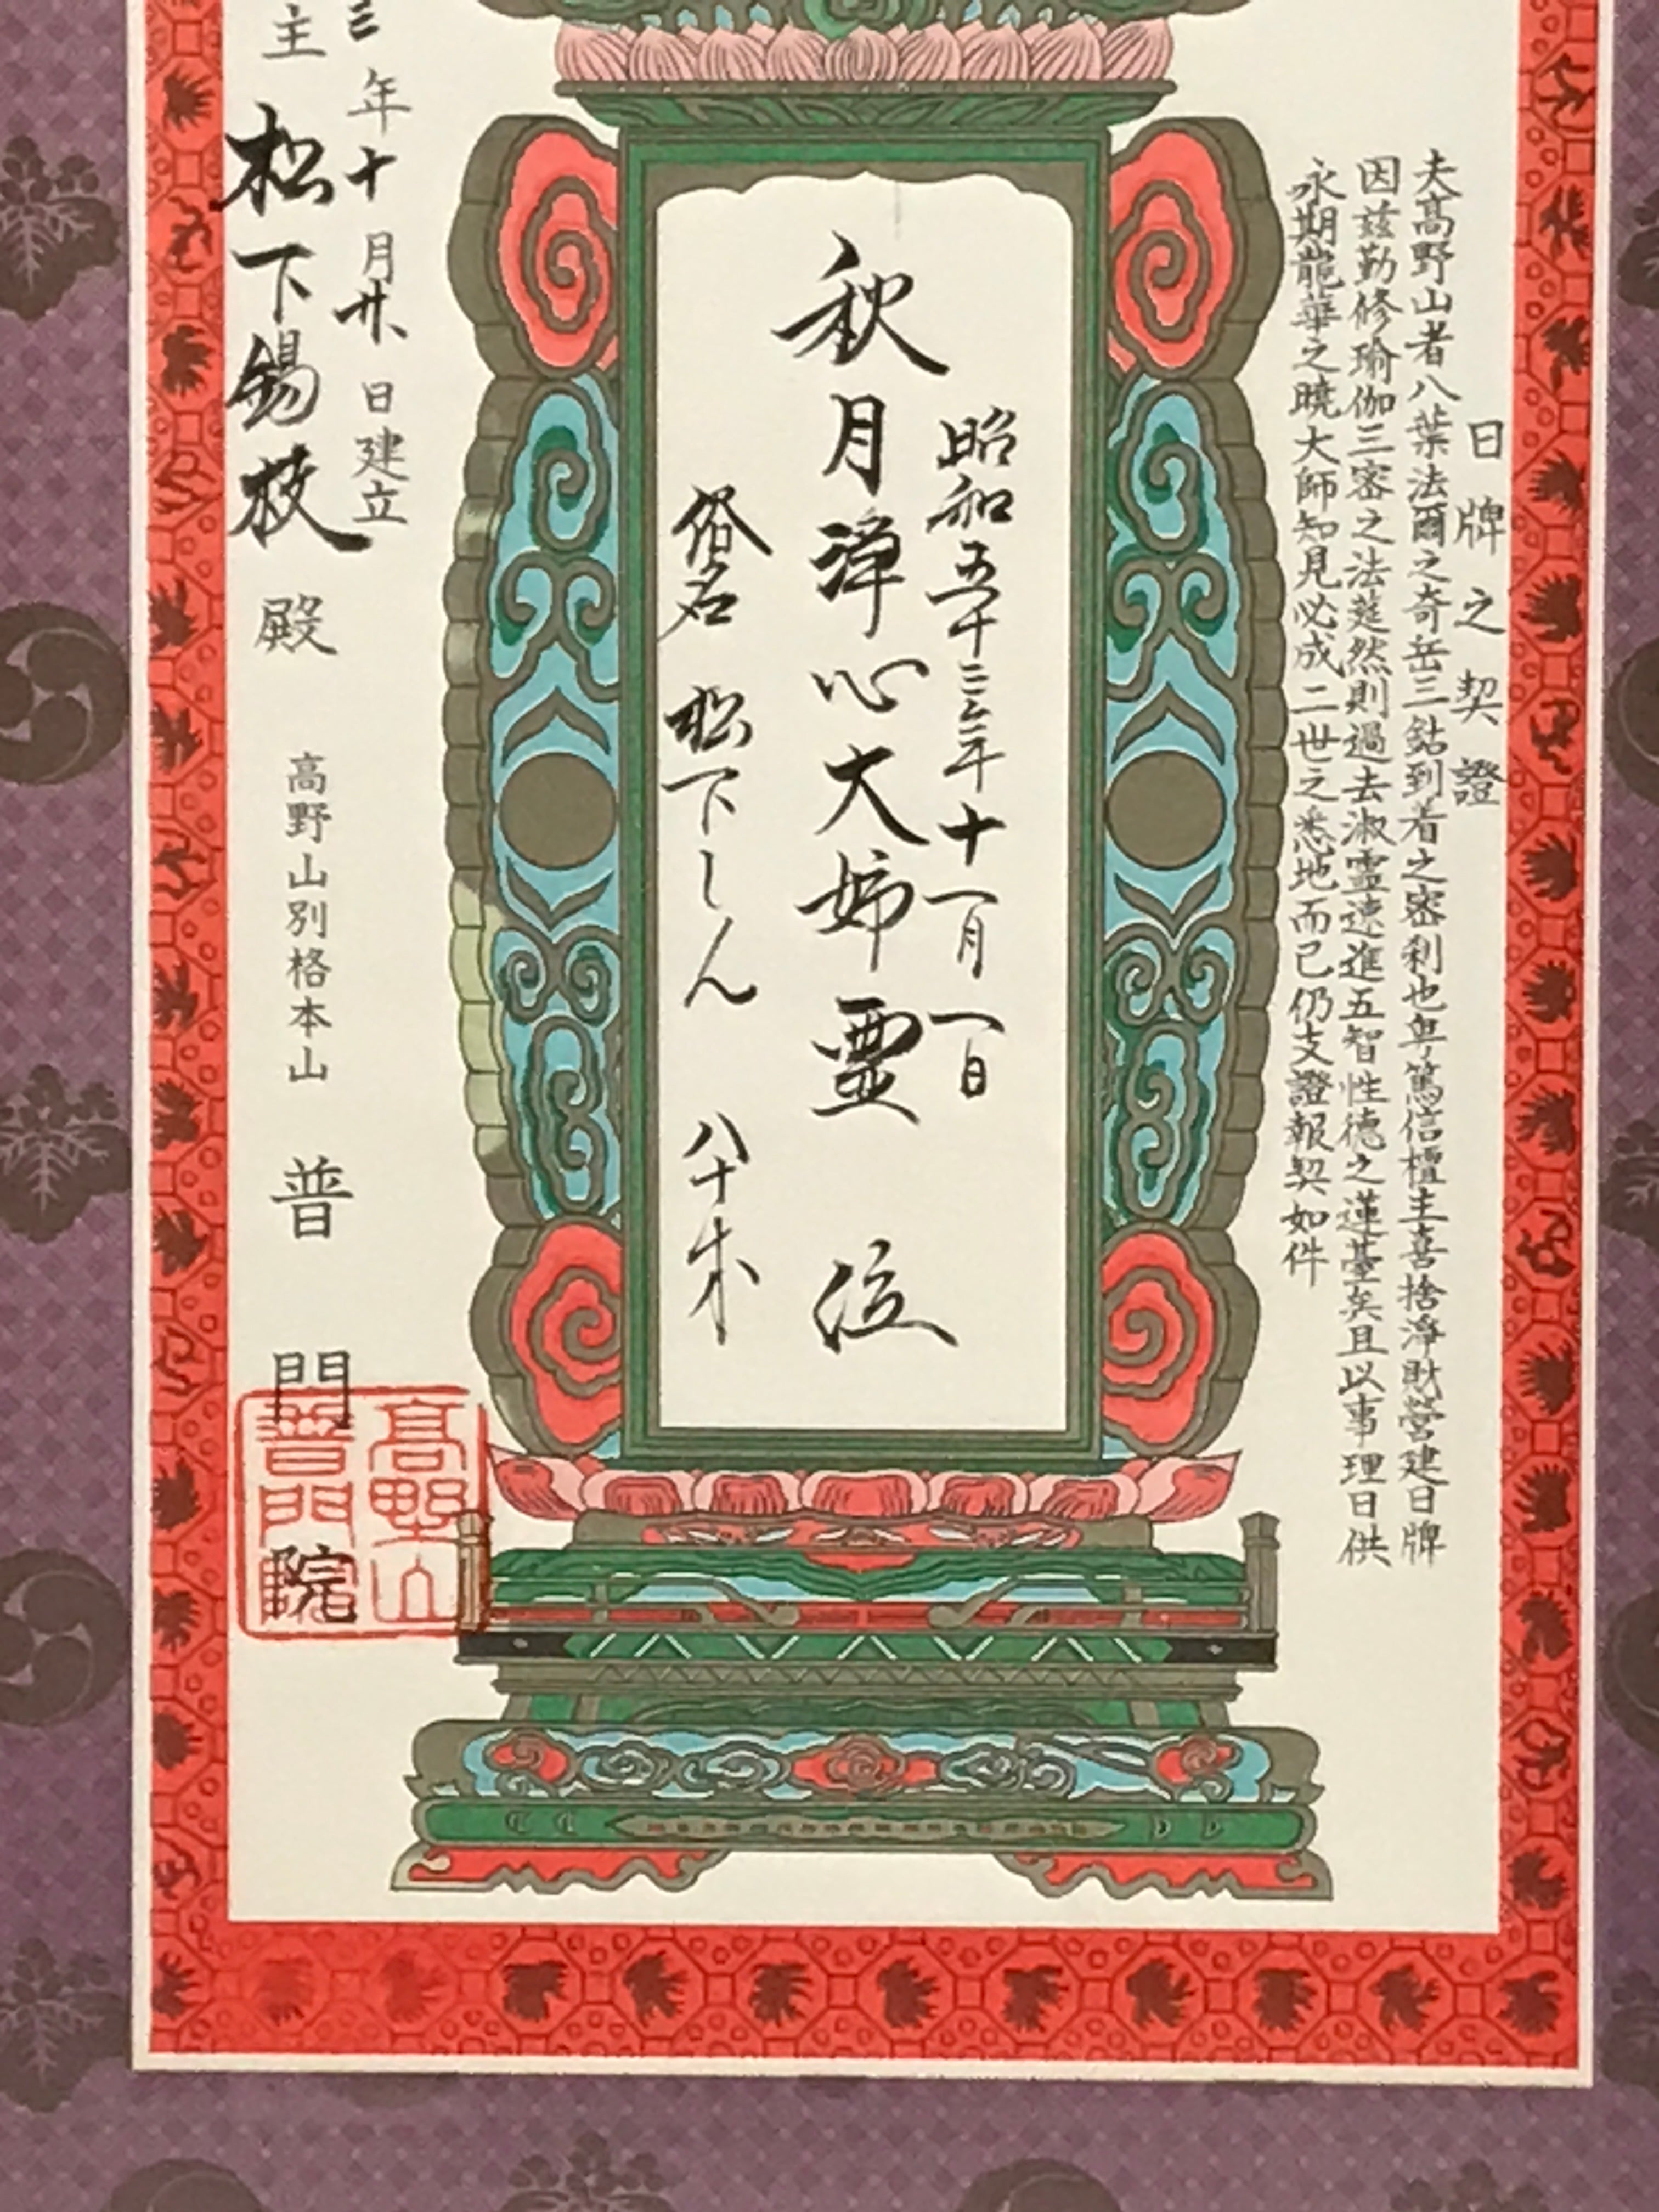 日牌之契證
夫高野山者八葉法爾之奇岳三鈷到着之密刹也粤篤信檀主喜捨淨財營建日牌
因茲勤修瑜伽三密之法莚然則過去淑靈速進五智性徳之蓮臺矣且以事理日供
永期龍華之曉大師知見必成二世之悉地而已仍支證報契如件
昭和五十三年十一月一日
秋月淨心大姉霊位
俗名 松下しん 八十才
三年十月廿日建立
主 松下錫枝殿
高野山別格本山 普門院
高野山
普門院